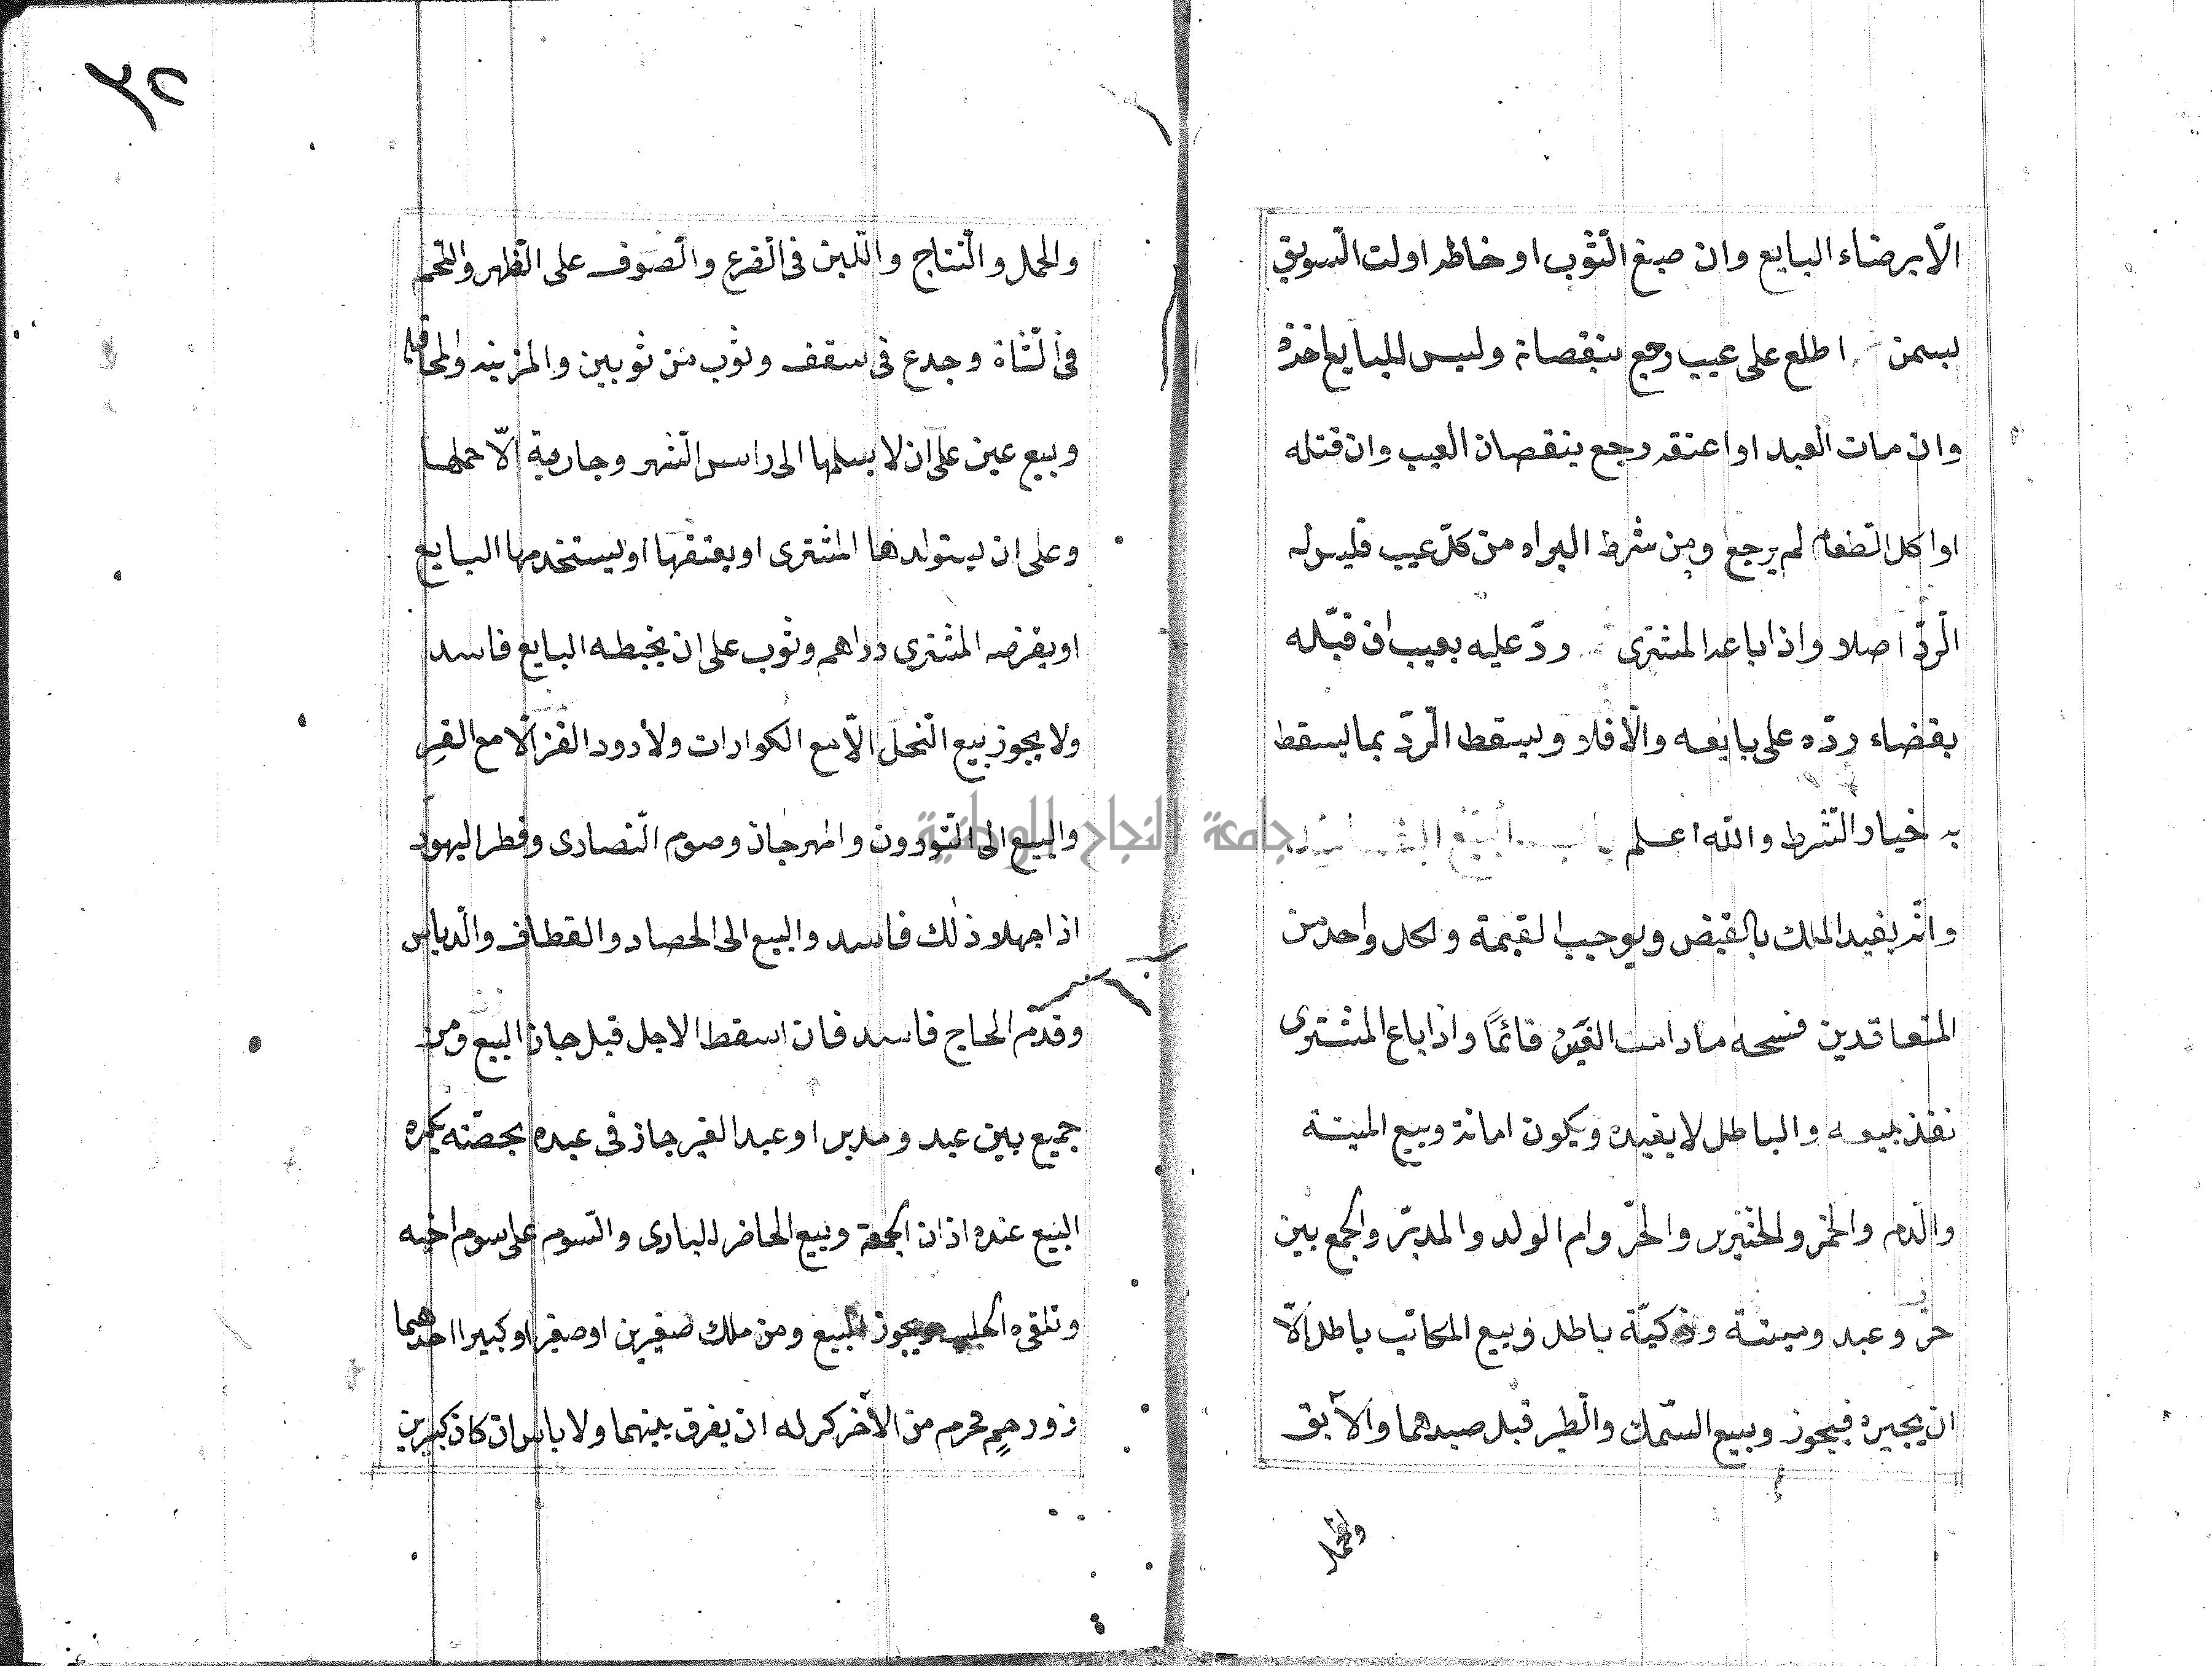 الّا برضاء البايع وان صبغ الثّوب او خاطه اولت السّويق
بسمن اطلع على عيب رجع بنقصانه وليس للبايع اخذه
وان مات العبد او اعتقه رجع بنقصان العيب وان قتله
او اكل الطّعام لم يرجع ومن شرط البراه من كلّ عيب فليس له
الرّدّ اصلا واذا باعه المشترى ردّ عليه بعيب ان قبّله
بقضاء ردّه على بايعه والّا فلا ويسقط الرّدّ بما يسقط
به خيار الشّرط والله اعلم باب البيع الفاسد
وانّه يفيد الملك بالقبض ويوجب القيمة ولكل واحد من
المتعاقدين فسخه ما دامت العَين قائمًا واذا باع المشترى
نفذ بيعه والباطل لا يفيده ويكون امانة وبيع الميتة
والّدم والخمر والخنزير والحرّ وام الولد والمدبّر والجمع بين
حرّ وعبد وميتة وذكيّة باطل وبيع المكاتب باطل الّا
ان يجيزه فيجوز وبيع السّمك والّطير قبل صيدهما والآبق
والحمل
٣٨
والحمل والّنتاج والّلبن فى الّضرع والّصوف على الّظهر والّلحم
فى الشّاة وجدع فى سقف وثوب من ثوبين والمزبنه والمحاقله
وبيع عين على ان لا يسلمها الى راس الّشهر وجارية الّا حملها
وعلى ان يستولدها المشترى او يعتقها او يستخدمها البايع
او يقرضه المشترى دراهم وثوب على ان يخيطه البايع فاسد
ولا يجوز بيع الّنحل الّا مع الكوارات ولا دود القز الّا مع القز
والبيع الى النّوروز والمهرجان وصوم الّنصارى وفطر اليهود
اذا جهلا ذلك فاسد والبيع الى الحصاد والقطاف والّدياس
وقدّم الحاج فاسد فان اسقط الاجل قبل جاز البيع ومن
جميع بين عبد ومدبر او عبد الغير جاز فى عبده بحصّته يكره
البيع عنده اذان الجمعة وبيع الحاضر للبادى والّسوم على سوم اخيه
وتلقى الجلب ويجوز البيع ومن ملك صغيرين او صغيرا وكبيرا احدهما
ذو رحمٍ محرم من الآخر كره له ان يفرق بينهما ولا باس ان كان كبيرين
جامعة النجاح الوطنية